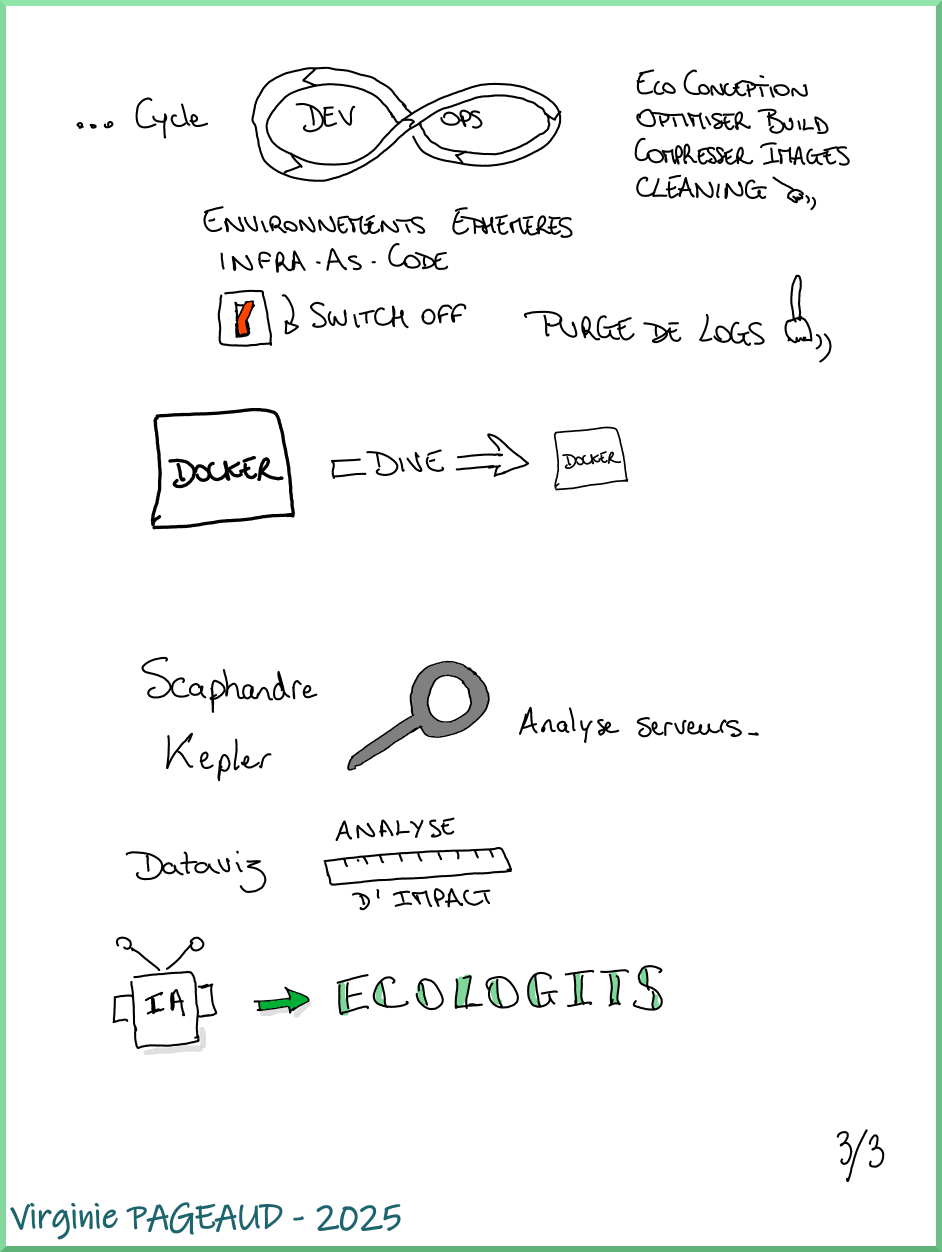 ... Cycle
DEV
OPS
ECO CONCEPTION
OPTIMISER BUILD
COMPRESSER IMAGES
CLEANING
ENVIRONNEMENTS EPHEMERES
INFRA-AS-CODE
SWITCH OFF
PURGE DE LOGS
DOCKER
DIVE
DOCKER
Scaphandre
Kepler
Analyse serveurs.
Dataviz
ANALYSE
D'IMPACT
IA
ECOLOGITS
3/3
Virginie PAGEAUD - 2025